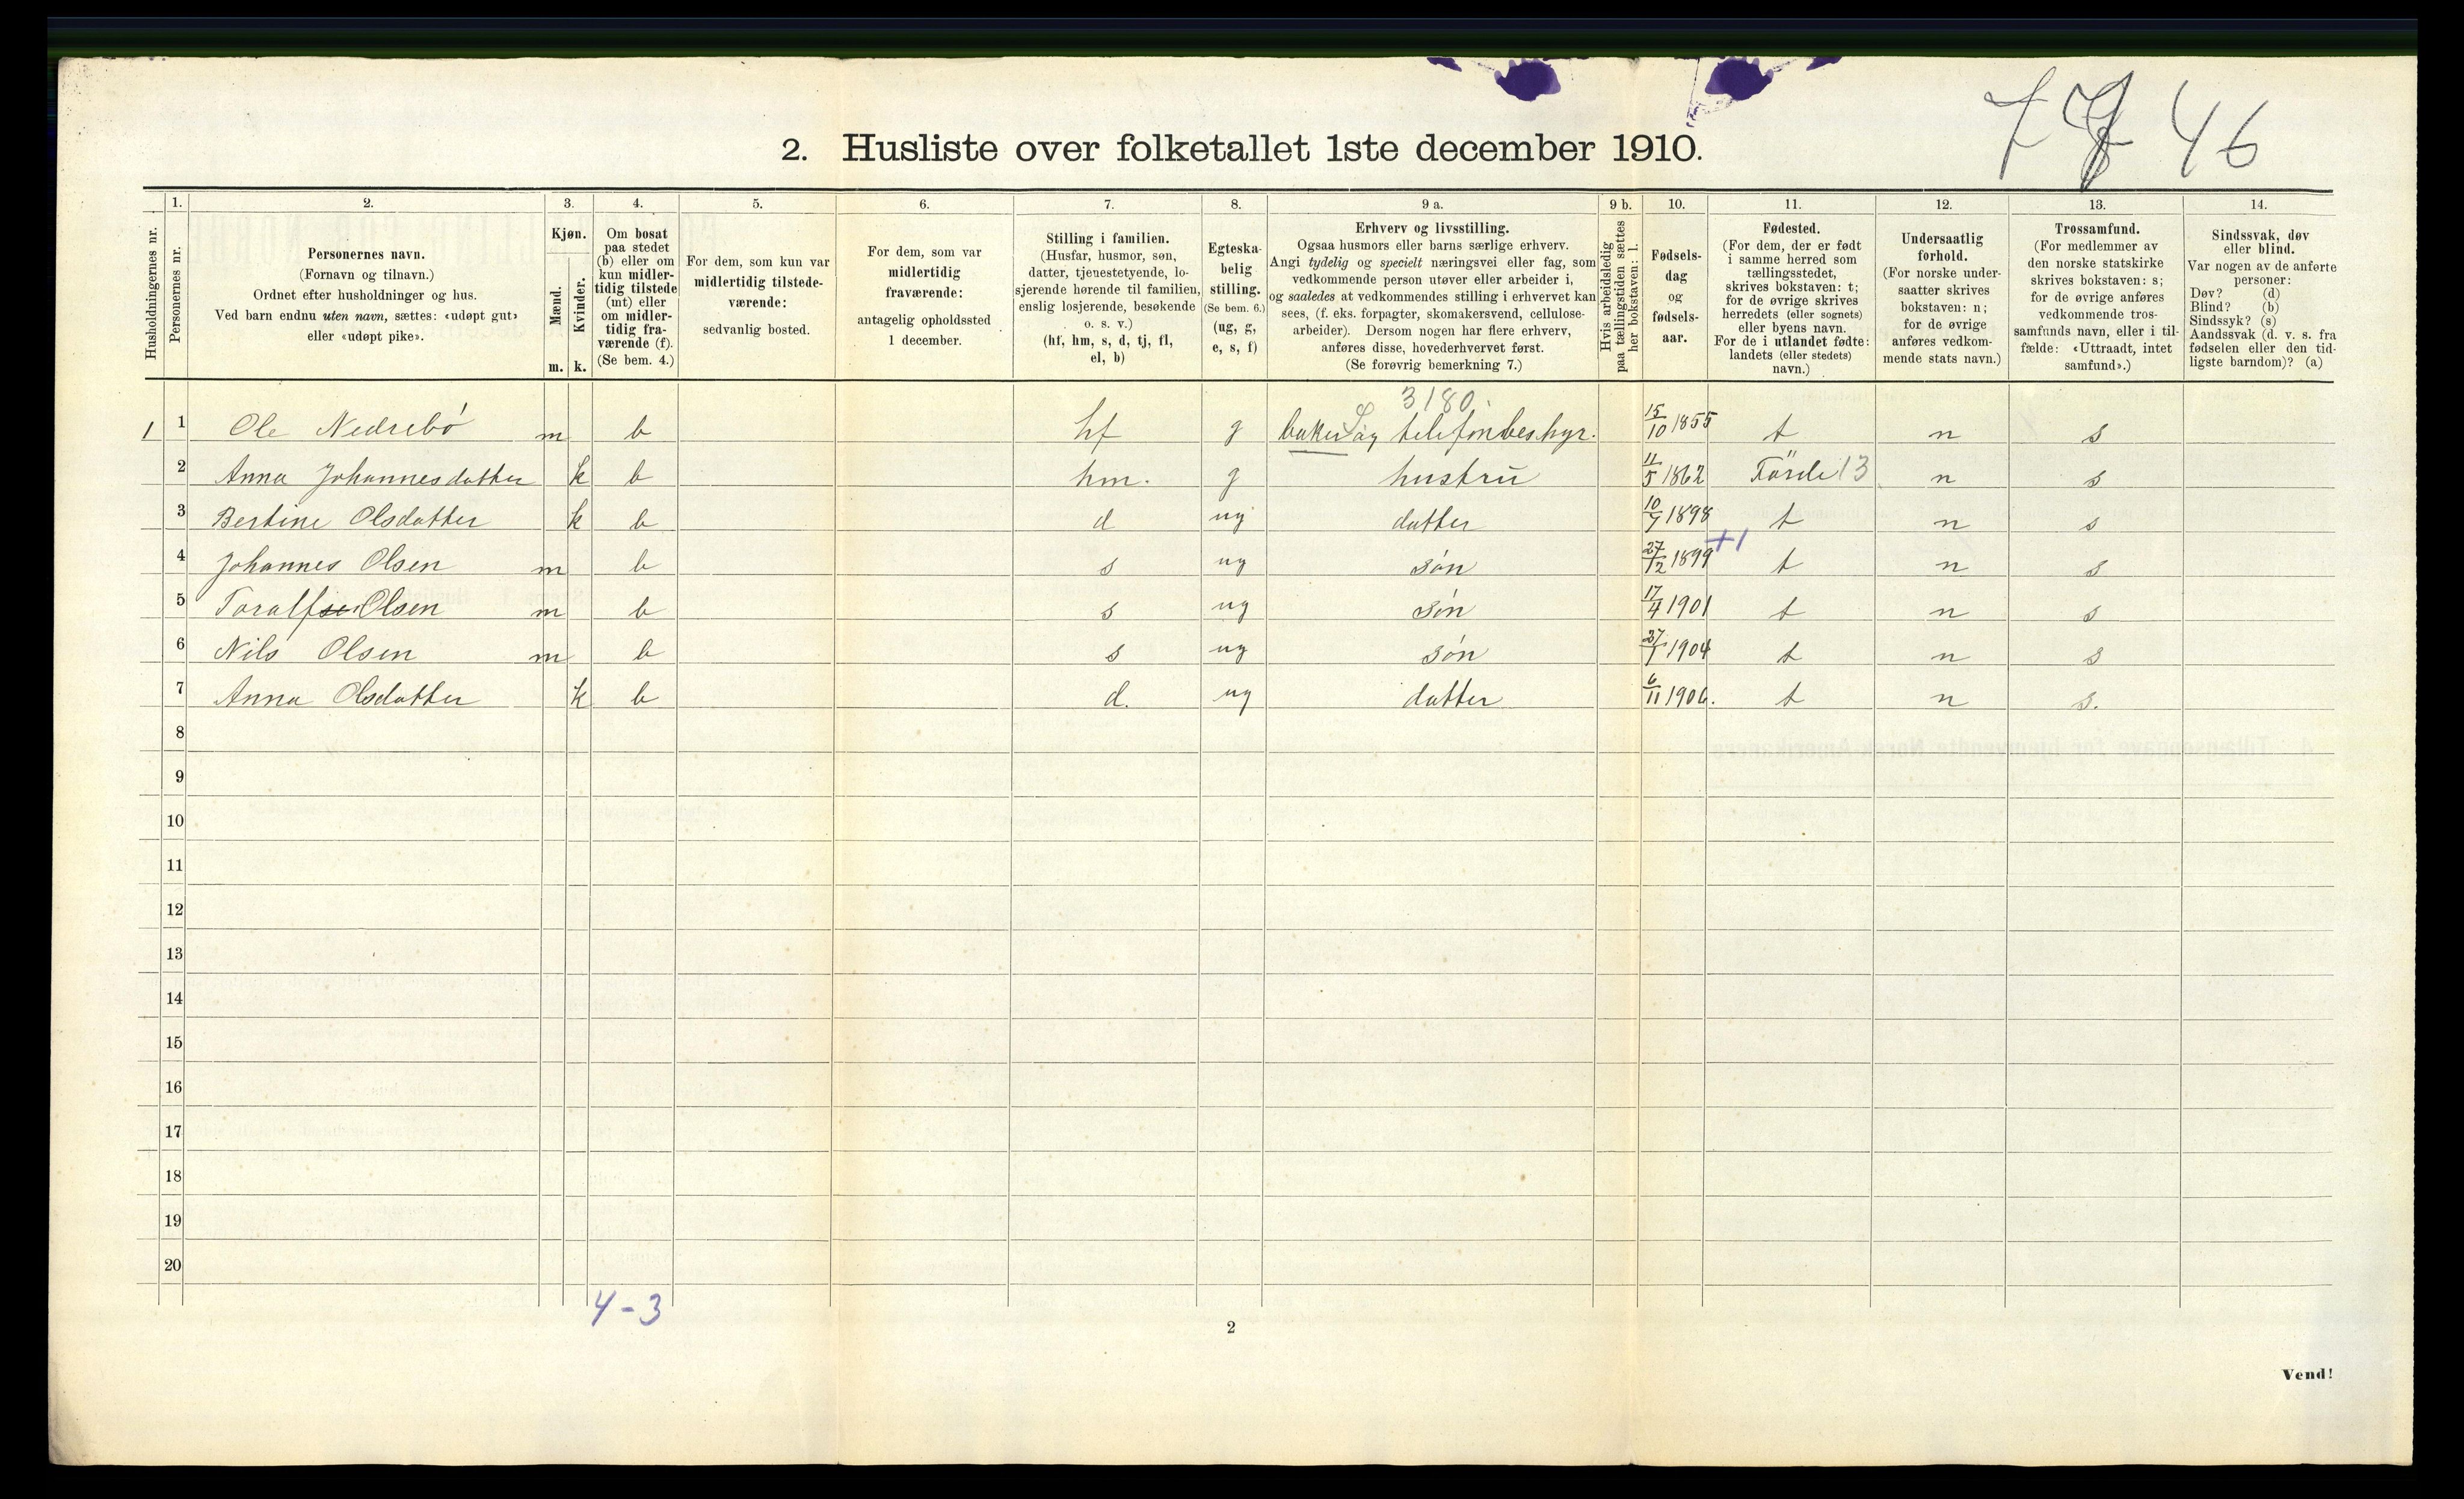 7 46
2. Husliste over folketallet 1ste december 1910.
Husholdningernes nr.
1.
Personernes nr.
2.
Personernes navn.
(Fornavn og tilnavn.)
Ordnet efter husholdninger og hus.
Ved barn endnu uten navn, sættes: «udøpt gut»
eller «udøpt pike».
3.
Kjøn.
Mænd.
Kvinder.
m. k.
4.
Om bosat
paa stedet
(b) eller om
kun midler-
tidig tilstede
(mt) eller
om midler-
tidig fra-
værende (f).
(Se bem. 4.)
5.
For dem, som kun var
midlertidig tilstede-
værende:
sedvanlig bosted.
6.
For dem, som var
midlertidig
fraværende:
antagelig opholdssted
1 december.
7.
Stilling i familien.
(Husfar, husmor, søn,
datter, tjenestetyende, lo-
sjerende hørende til familien,
enslig losjerende, besøkende
o. s. v.)
(hf, hm, s, d, tj, fl,
el, b)
8.
Egteska-
belig
stilling.
(Se bem. 6.)
(ug, g,
e, s, f)
9 a.
Erhverv og livsstilling.
Ogsaa husmors eller barns særlige erhverv.
Angi tydelig og specielt næringsvei eller fag, som
vedkommende person utøver eller arbeider i,
og saaledes at vedkommendes stilling i erhvervet kan
sees, (f. eks. forpagter, skomakersvend, cellulose-
arbeider). Dersom nogen har flere erhverv,
anføres disse, hovederhvervet først.
(Se forøvrig bemerkning 7.)
9 b.
Hvis arbeidsledig
paa tællingstiden sættes
her bokstaven: l.
10.
Fødsels-
dag
og
fødsels-
aar.
11.
Fødested.
(For dem, der er født
i samme herred som
tællingsstedet,
skrives bokstaven: t;
for de øvrige skrives
herredets (eller sognets)
eller byens navn.
For de i utlandet fødte:
landets (eller stedets)
navn.)
12.
Undersaatlig
forhold.
(For norske under-
saatter skrives
bokstaven: n;
for de øvrige
anføres vedkom-
mende stats navn.)
13.
Trossamfund.
(For medlemmer av
den norske statskirke
skrives bokstaven: s;
for de øvrige anføres
vedkommende tros-
samfunds navn, eller i til-
fælde: «Uttraadt, intet
samfund».)
14.
Sindssvak, døv
eller blind.
Var nogen av de anførte
personer:
Døv? (d)
Blind? (b)
Sindssyk? (s)
Aandssvak (d. v. s. fra
fødselen eller den tid-
ligste barndom)? (a)
3180.
1 1 Ole Nedrebö m b hf g baker og telefonbestyr. 15/10 1855 t n s
2 Anna Johannesdatter k b hm. g hustru 11/5 1862 Förde 13 n s
3 Bertine Olsdatter k b d ug datter 10/9 1898 t n s
+1
4 Johannes Olsen m b s ug søn 27/12 1899 t n s
5 Toralf Olsen m b s ug søn 17/4 1901 t n s
6 Nils Olsen m b s ug søn 27/1 1904 t n s
7 Anna Olsdatter k b d. ug datter 6/11 1906. t n s.
8
9
10
11
12
13
14
15
16
17
18
19
20
4-3
2
Vend!